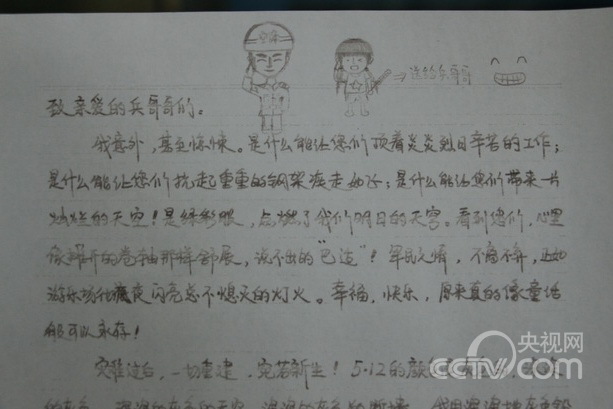 宪兵
→送给兵哥哥
致亲爱的兵哥哥的。
我意外，甚至惊悚。是什么能让您们顶着炎炎烈日辛苦的工作；
是什么能让您们扛起重重的钢架疾走如飞；是什么能让您们带来一片
灿烂的天空！是绿彩服，点燃了我们明日的天空。看到您们，心里
像摊开的卷轴那样舒展，说不出的“巴适”！军民之情，不离不弃，正如
游乐场化夜闪亮总不熄灭的灯火。幸福，快乐，原来真的像童话
般可以永存！
灾难过后，一切重建，宛若新生！5·12的颜色
央视网
CCTV.com